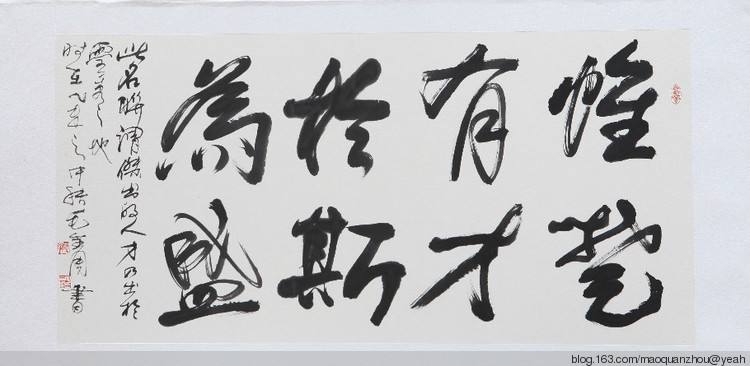 惟楚
有才
於斯
為盛
此名聯謂傑出的人才乃出於
之地
時在年之仲秋毛全周書
blog.163.com/maoquanzhou@yeah